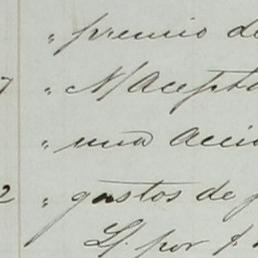 " premio de
7 " N/ Acepta
" una acci
2 " gastos de p
L/. por f.